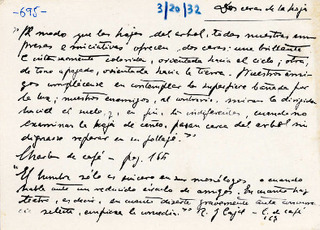 -695-
3/20/32
Dos caras de la hoja
"Al modo que las hojas del arbol, todas nuestras em
presas e iniciativas ofrecen dos caras: una brillante
e intensamente coloreada, orientada hacia el cielo; otra,
de tono apagado, orientada hacia la tierra. Nuestros ami-
gos complácense en contemplar la superficie bañada por
la luz, nuestros enemigos, al contrario, miran la dirigida
hacia el suelo, y, en fin, los indiferentes, cuando no
examinan la hoja de canto, pasan cerca del arbol sin
dignarse reparar en su follaje."
Charlas de café - pag. 166
"El hombre sólo es sincero en sus monólogos o cuando
habla ante un reducido círculo de amigos. En cuanto hay
teatro, es decir, en cuanto diserta gravemente ante concurren
cia selecta, empieza la comedia." R. y Cajal - C. de café
163